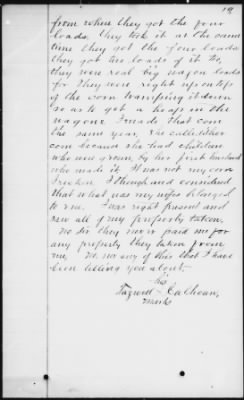 19
from where they got the four
loads. They took it at the same
time they got the four loads
they got two loads of it. So,
they were real big wagon loads
for they were right upon top
of the corn tramping it down
so as to get a heap in the
wagons. I made that corn
the same year, she called it her
corn because she had children
who were grown, by her first husband
who made it. It was not my corn
I reckon. I though and considered
that what was my wifes belonged
to me. I was right present and
saw all of my property taken.
No sir they never paid me for
any property they taken from
me, No, no any of this that I have
been telling you about.
his
Tazwell Calhoun,
mark